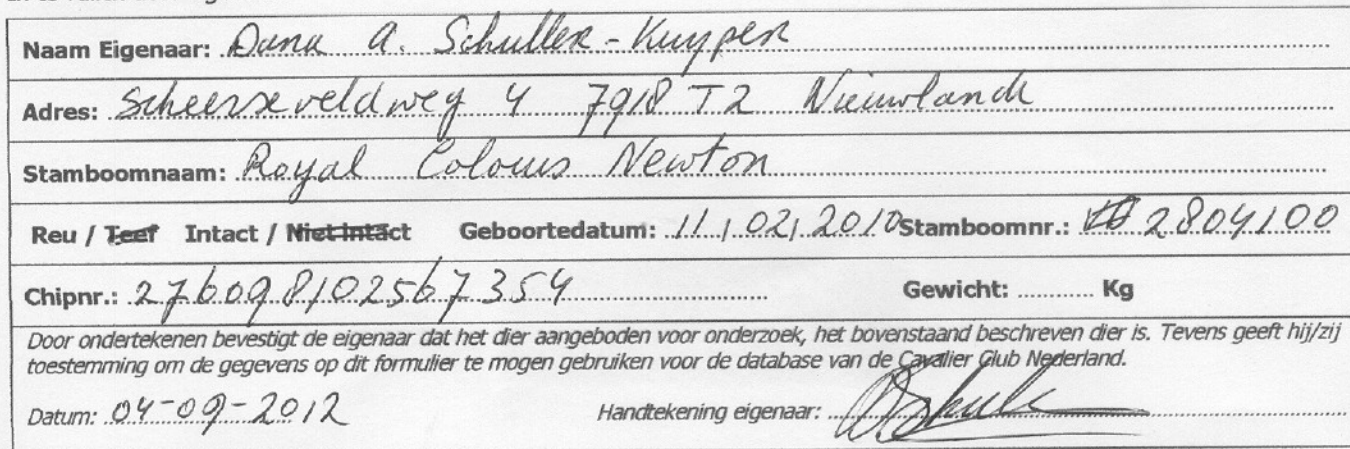 Naam Eigenaar: Dana A. Schuller-Kuyper
Adres: Scheerseveldweg 4 7918 TZ Nieuwlande
Stamboomnaam: Royal Colours Newton
Reu / Teef Intact / Niet Intact Geboortedatum: 11/02/2010 Stamboomnr.: 2804100
Chipnr.: 276098102567354 Gewicht: ............ Kg
Door ondertekenen bevestigt de eigenaar dat het dier aangeboden voor onderzoek, het bovenstaand beschreven dier is. Tevens geeft hij/zij
toestemming om de gegevens op dit formulier te mogen gebruiken voor de database van de Cavalier Club Nederland.
Datum: 04-09-2012 Handtekening eigenaar: